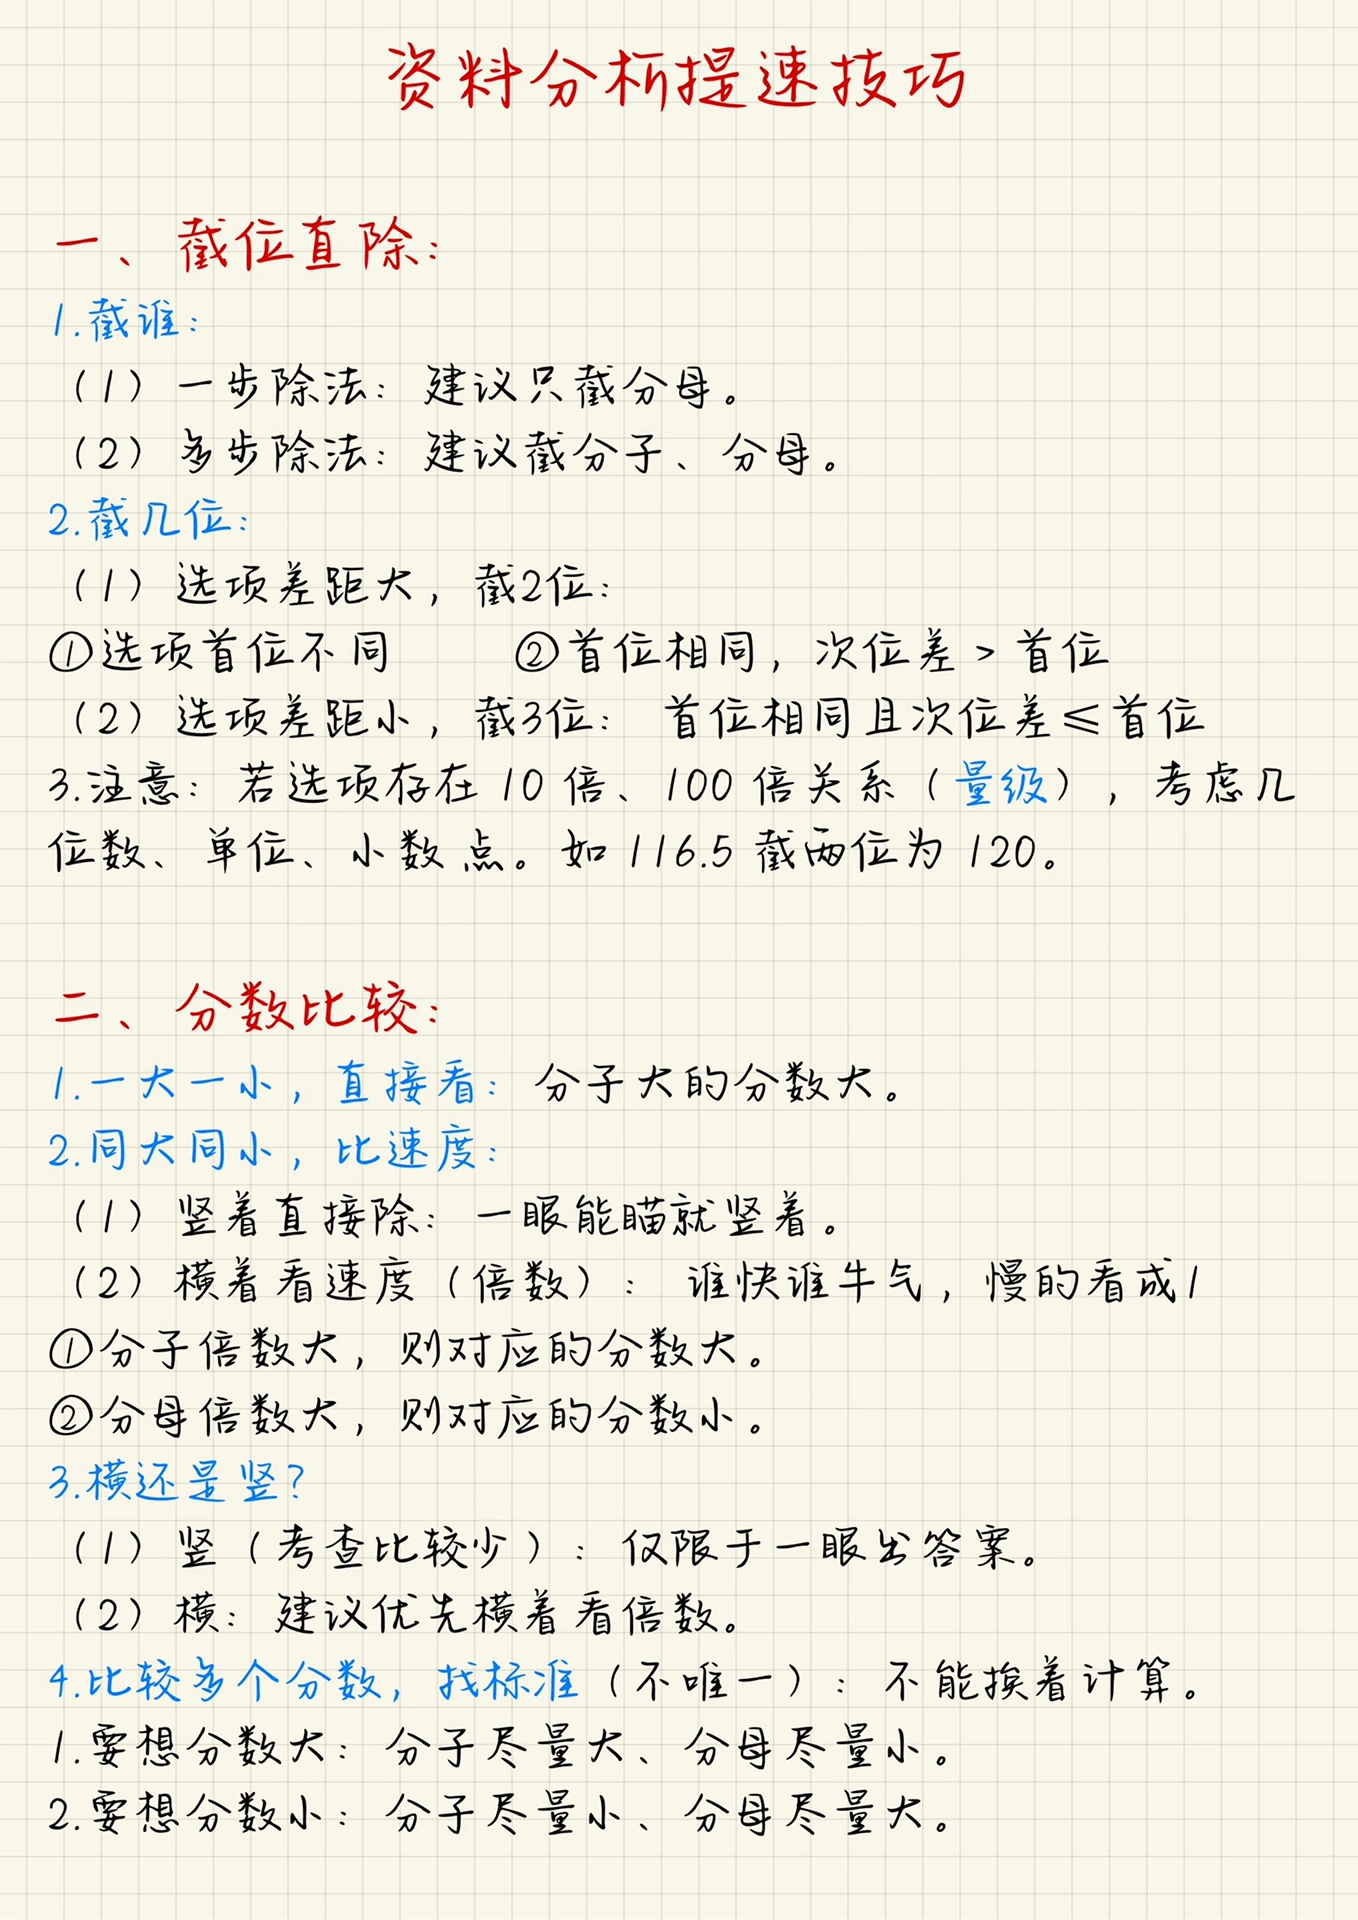 资料分析提速技巧
一、截位直除：
1.截谁：
（1）一步除法：建议只截分母。
（2）多步除法：建议截分子、分母。
2.截几位：
（1）选项差距大，截2位：
①选项首位不同 ②首位相同，次位差>首位
（2）选项差距小，截3位：首位相同且次位差≤首位
3.注意：若选项存在10倍、100倍关系（量级），考虑几
位数、单位、小数点。如116.5截两位为120。
二、分数比较：
1.一大一小，直接看：分子大的分数大。
2.同大同小，比速度：
（1）竖着直接除：一眼能瞄就竖着。
（2）横着看速度（倍数）：谁快谁牛气，慢的看成1
①分子倍数大，则对应的分数大。
②分母倍数大，则对应的分数小。
3.横还是竖？
（1）竖（考查比较少）：仅限于一眼出答案。
（2）横：建议优先横着看倍数。
4.比较多个分数，找标准（不唯一）：不能挨着计算。
1.要想分数大：分子尽量大、分母尽量小。
2.要想分数小：分子尽量小、分母尽量大。